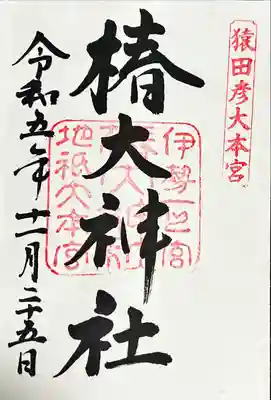 猿田彦大本宮
椿大神社
伊勢一之宮
地祇大本宮
令和五年十一月二十五日